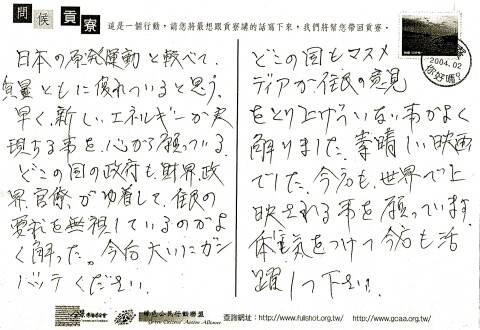 問候貢寮
這是一個行動，請您將最想跟貢寮講的話寫下來，我們將幫您帶回貢寮。
日本の原発運動と較べて、
質量ともに優れていると思う。
早く、新しいエネルギーが実
現する事を、心から願っている。
どこの国の政府も、財界、政
界、官僚が癒着して、住民の
要求を無視しているのがよ
く解った。今后大いにガン
バッテください。
どこの国もマスメ
ディアが住民の意見
をとり上げていない事がよく
解りました。素晴しい映画
でした。今后も、世界で上
映される事を願っています。
体に気をつけて今后も活
躍して下さい。
2004.02
你好嗎?
綠色公民行動聯盟
Green Citizens' Action Alliance
查詢網址：http://www.fullshot.org.tw/ http://www.gcaa.org.tw/